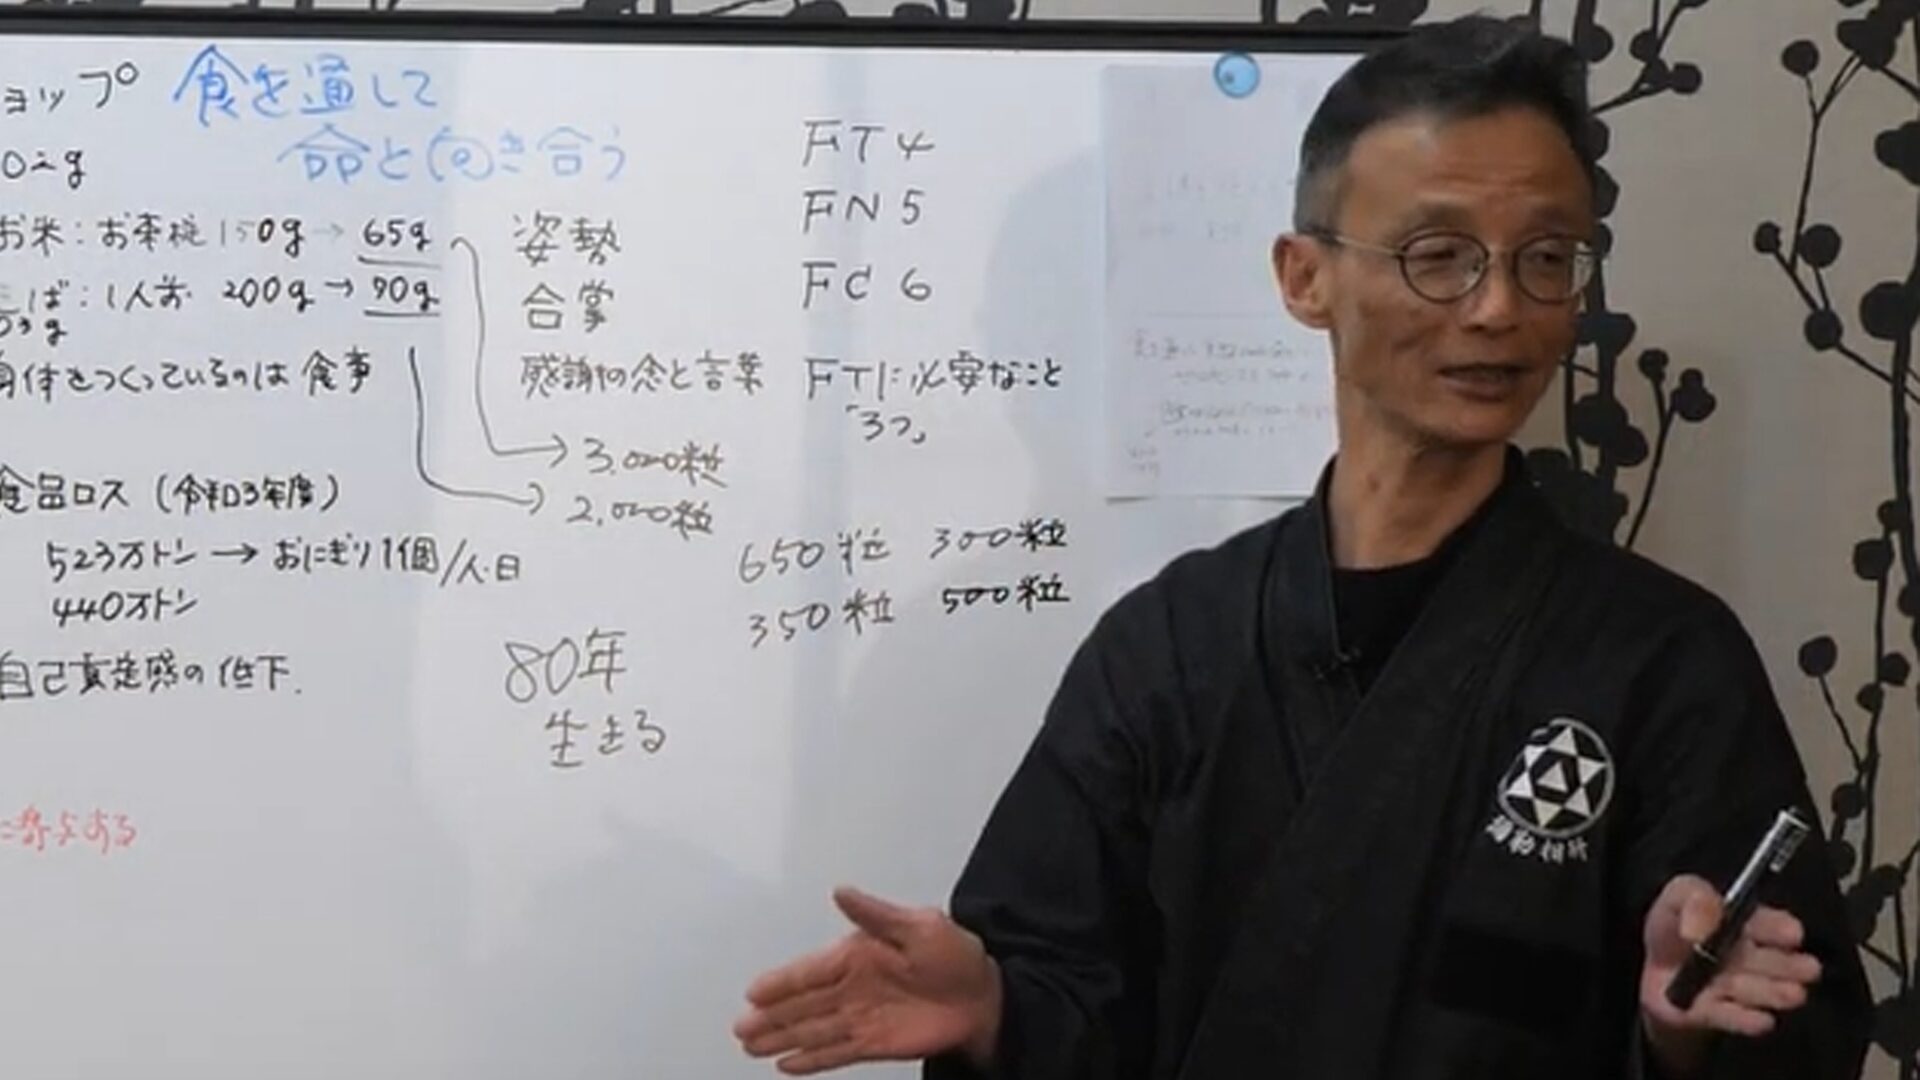 ョップ 食を通して
命と向き合う
02g
お米：お茶碗 150g → 65g
そば：1人前 200g → 90g
03g
身体をつくっているのは 食事
姿勢
合掌
感謝の念と言葉
3,000粒
2,000粒
食品ロス (令和3年度)
523万トン → おにぎり1個/人・日
440万トン
自己肯定感の低下.
80年
生きる
FT4
FN5
FC6
FTに必要なこと
「3つ」
650粒 300粒
350粒 500粒